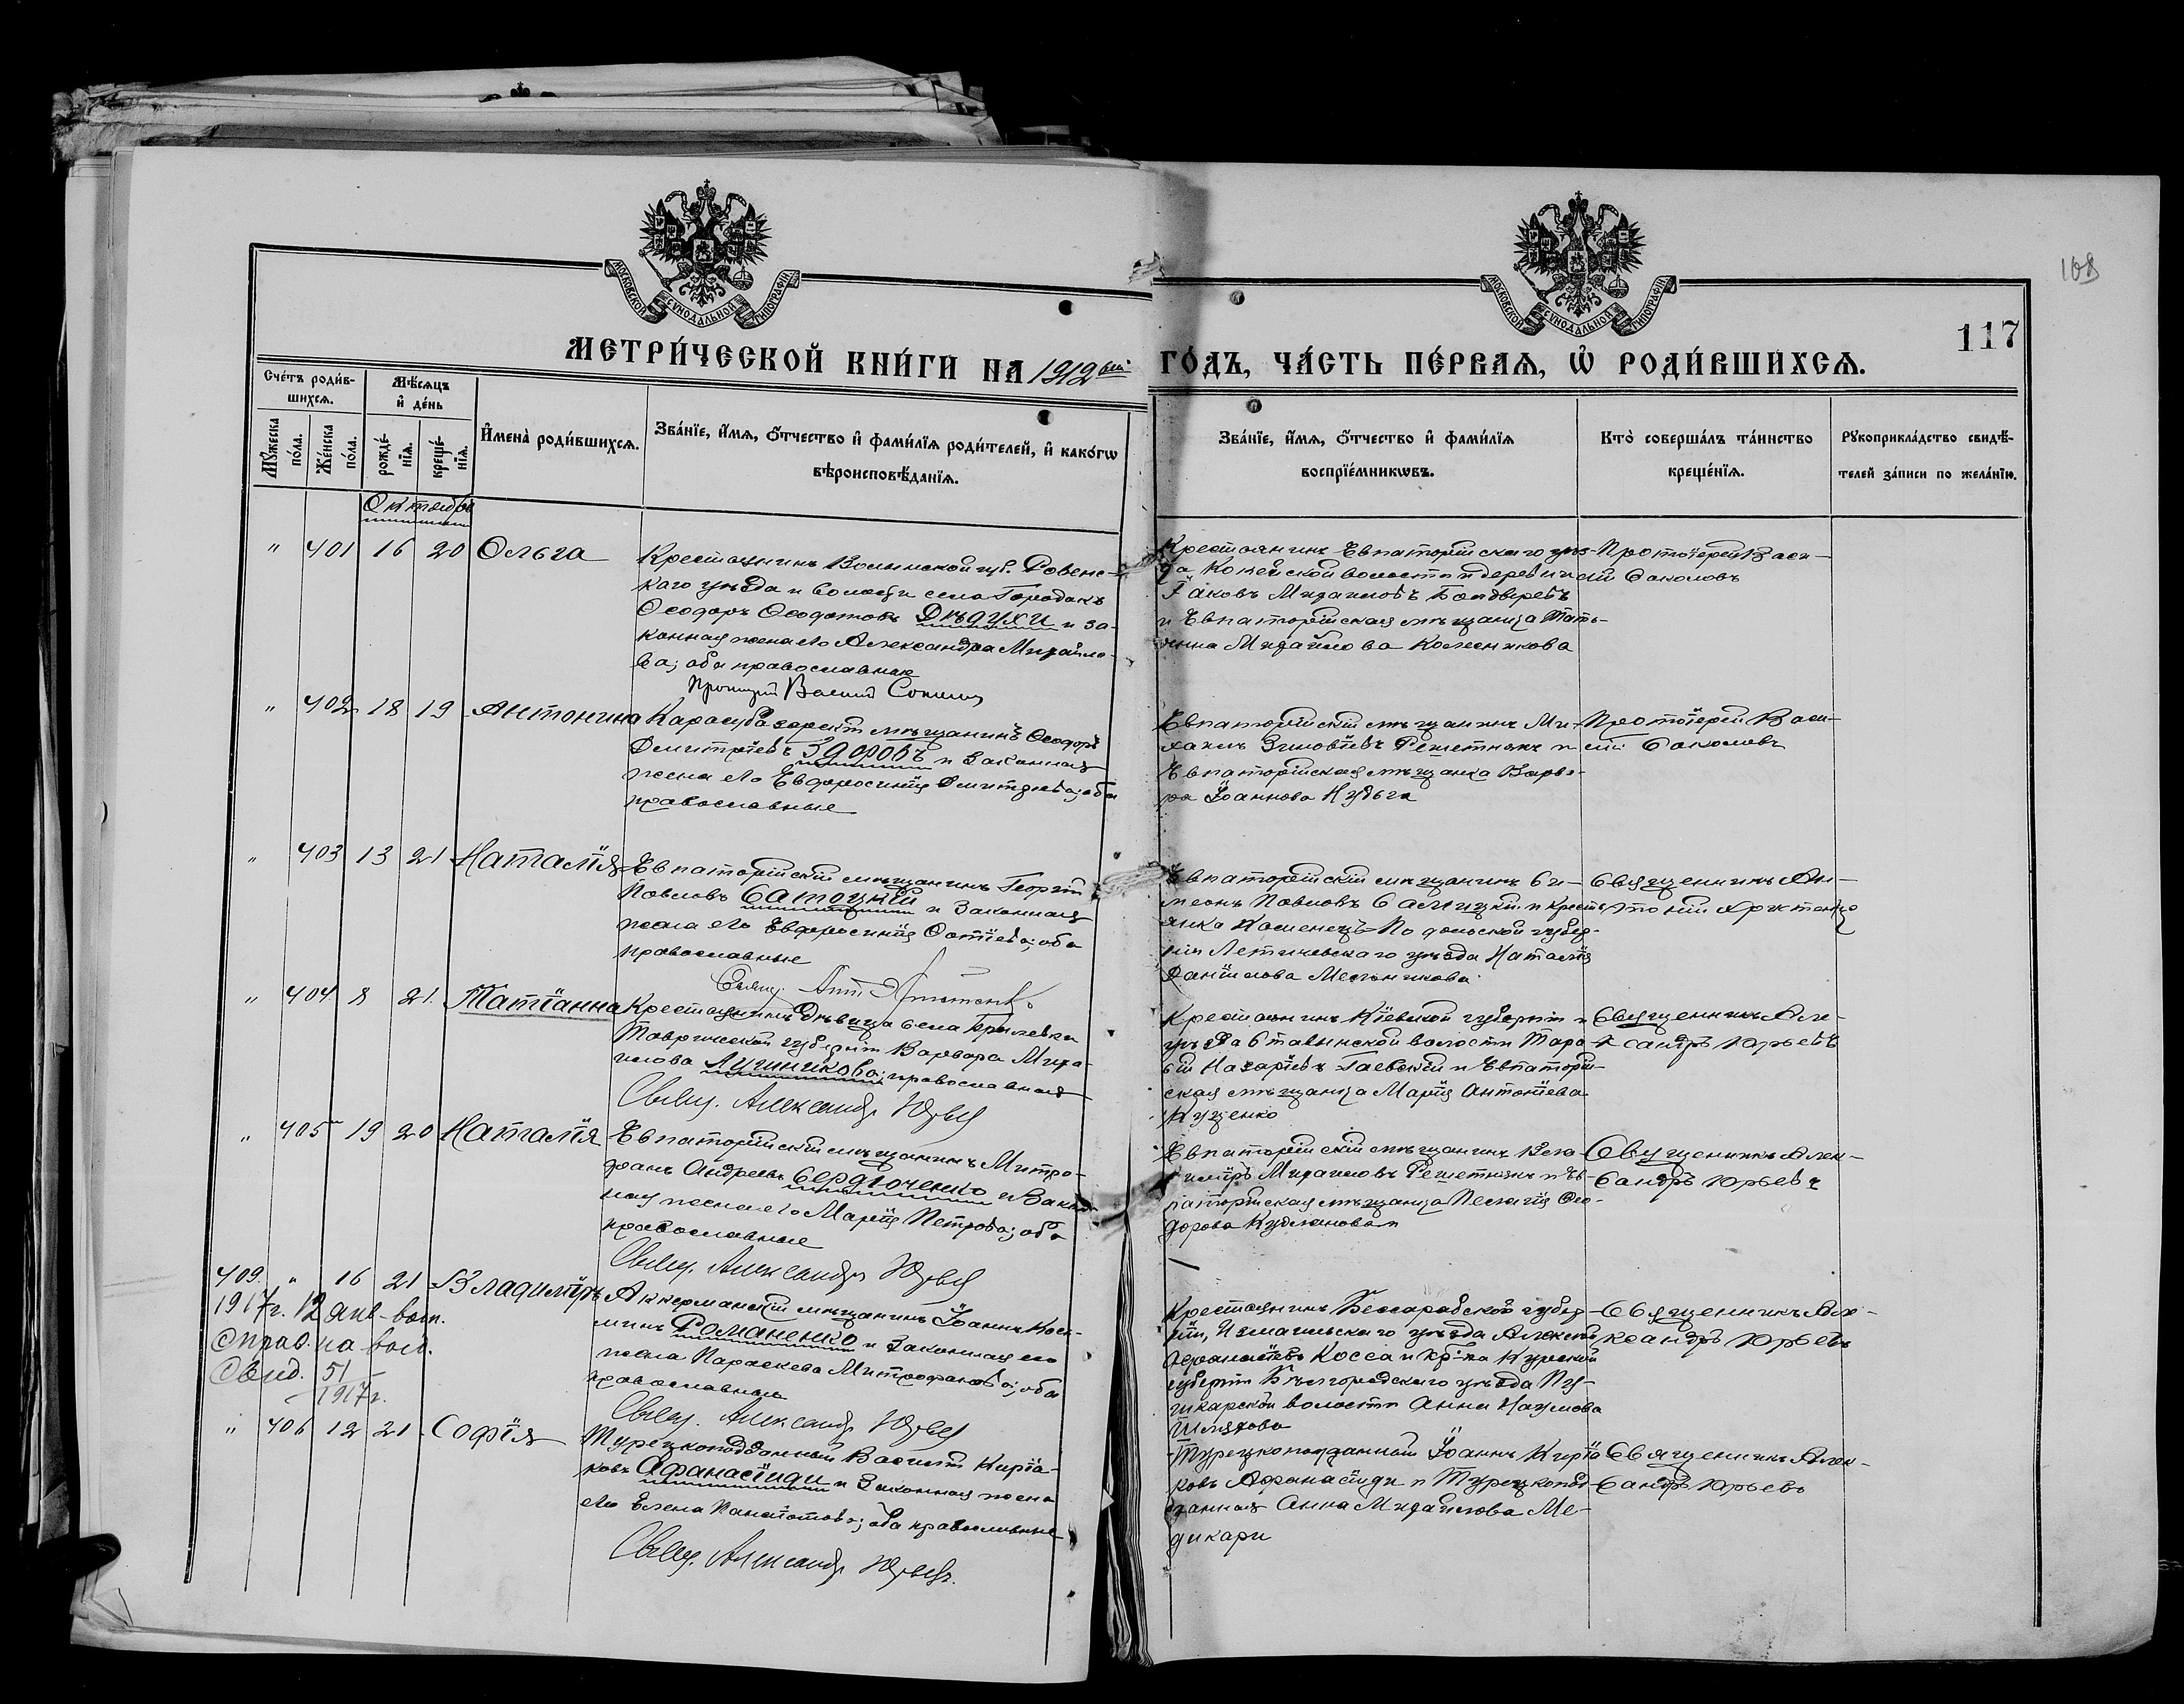 108
117
МОСКОВСКОЙ СѴНОДАЛЬНОЙ ТИПОГРАФІИ
МОСКОВСКОЙ СѴНОДАЛЬНОЙ ТИПОГРАФІИ
МЕТРИ́ЧЕСКОЙ КНИ́ГИ НА 1912 ГО́ДЪ, ЧА́СТЬ ПЕ́РВАѦ, Ѿ РОДИ́ВШИХСѦ.
Сче́тъ роди́в-
шихсѧ.
Мѣ́сѧцъ
и҆ де́нь
Мꙋ́жеска
по́ла.
Же́нска
по́ла.
рожде́-
нїѧ.
креще́-
нїѧ.
И҆мена̀ роди́вшихсѧ.
Зва́нїе, и҆́мѧ, ѻ҆́тчество и҆ фами́лїѧ роди́телей, и҆ како́гѡ
вѣроисповѣ́данїѧ.
Зва́нїе, и҆́мѧ, ѻ҆́тчество и҆ фами́лїѧ
воспрїе́мникѡвъ.
Кто̀ соверша́лъ та́инство
креще́нїѧ.
Рꙋкоприкла́дство свидѣ́-
телей за́писи по жела́нїю.
Октябрь
" 401 16 20 Ольга
Крестьянинъ Волынской губ. Ровенс-
каго уѣзда и волости села Городокъ
Ѳеодоръ Ѳеодотовъ Дѣдухи и за-
конная жена его Александра Михайло-
ва; оба православные
Протоіерей Василій Соколовъ
Крестьянинъ Евпаторійскаго уѣз-
да, волости и деревни
Іаковъ Михаиловъ
и Евпаторійская мѣщанка Тать-
яна Михайлова Колесникова
Протоіерей Васи-
лій Соколовъ
" 402 18 19 Антонина
Карасубазарскій мѣщанинъ Ѳеодоръ
Дмитріевъ Здоровъ и законная
жена его Евфросинія Дмитріева; оба
православные
Евпаторійскій мѣщанинъ Ми-
хаилъ Зиновіевъ Решетнякъ и
Евпаторійская мѣщанка Варва-
ра Іоаннова Кудьга
Протоіерей Васи-
лій Соколовъ
" 403 13 21 Наталія
Евпаторійскій мѣщанинъ Георгій
Павловъ Сатоцкій и законная
жена его Евфросинія Фотіева; оба
православные
Свящ. Ант.
Евпаторійскій мѣщанинъ Си-
меонъ Павловъ и кресть-
янка Каменецъ-Подольской губер-
ніи Летичевскаго уѣзда Наталія
Даніилова Мельникова
Священникъ Ан-
тоній
" 404 8 21 Татіанна
Крестьянинъ Дѣвица села
Таврической губерніи Варвара Миха-
илова Лучникова; православная
Свящ. Александръ Юрьевъ
Крестьянинъ Кіевской губерніи и
уѣзда Ставынской волости Тара-
сій Назаріевъ Гаевскій и Евпаторій-
ская мѣщанка Марія Антоніева
Куценко
Священникъ Але-
ксандръ Юрьевъ
" 405 19 20 Наталія
Евпаторійскій мѣщанинъ Митро-
фанъ Андреевъ Сердюченко и закон-
ная жена его Марія Петрова; оба
православные
Свящ. Александръ Юрьевъ
Евпаторійскій мѣщанинъ Вла-
димиръ Михаиловъ Решетнякъ и Ев-
паторійская мѣщанка Пелагія Ѳео-
дорова
Священникъ Алек-
сандръ Юрьевъ
409 " 16 21 Владиміръ
1917 г. 12 янв.
Свид. 51
1917 г.
Аккерманскій мѣщанинъ Іоаннъ Кось-
минъ Романенко и законная его
жена Параскева Митрофанова; оба
православные
Свящ. Александръ Юрьевъ
Крестьянинъ Бессарабской губер-
ніи, Измаильскаго уѣзда Алексѣй
Аѳанасіевъ Косса и кр-ка Курской
губерніи Бѣлгородскаго уѣзда Пу-
шкарской волости Анна Наумова
Шляхова
Священникъ Але-
ксандръ Юрьевъ
" 406 12 21 Софія
Турецкоподданный Василій Киріа-
ковъ Афанасіиди и законная жена
его Елена Панаіотова; оба православные
Свящ. Александръ Юрьевъ.
Турецкоподданный Іоаннъ Киріа-
ковъ Афанасіиди и Турецкопод-
данная Анна Михайлова Ме-
дикари
Священникъ Алек-
сандръ Юрьевъ